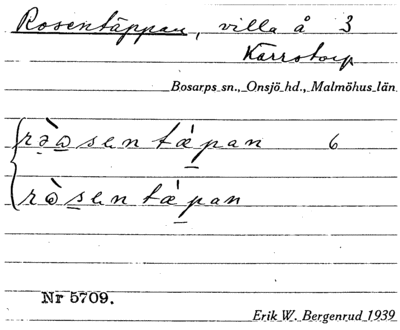 Rosentäppan, villa å 3
Karrstorp
Bosarps sn., Onsjö hd., Malmöhus län
rə̀ɷsentǽpan 6
rɷ̀sentǽpan
Nr 5709.
Erik W. Bergenrud 1939